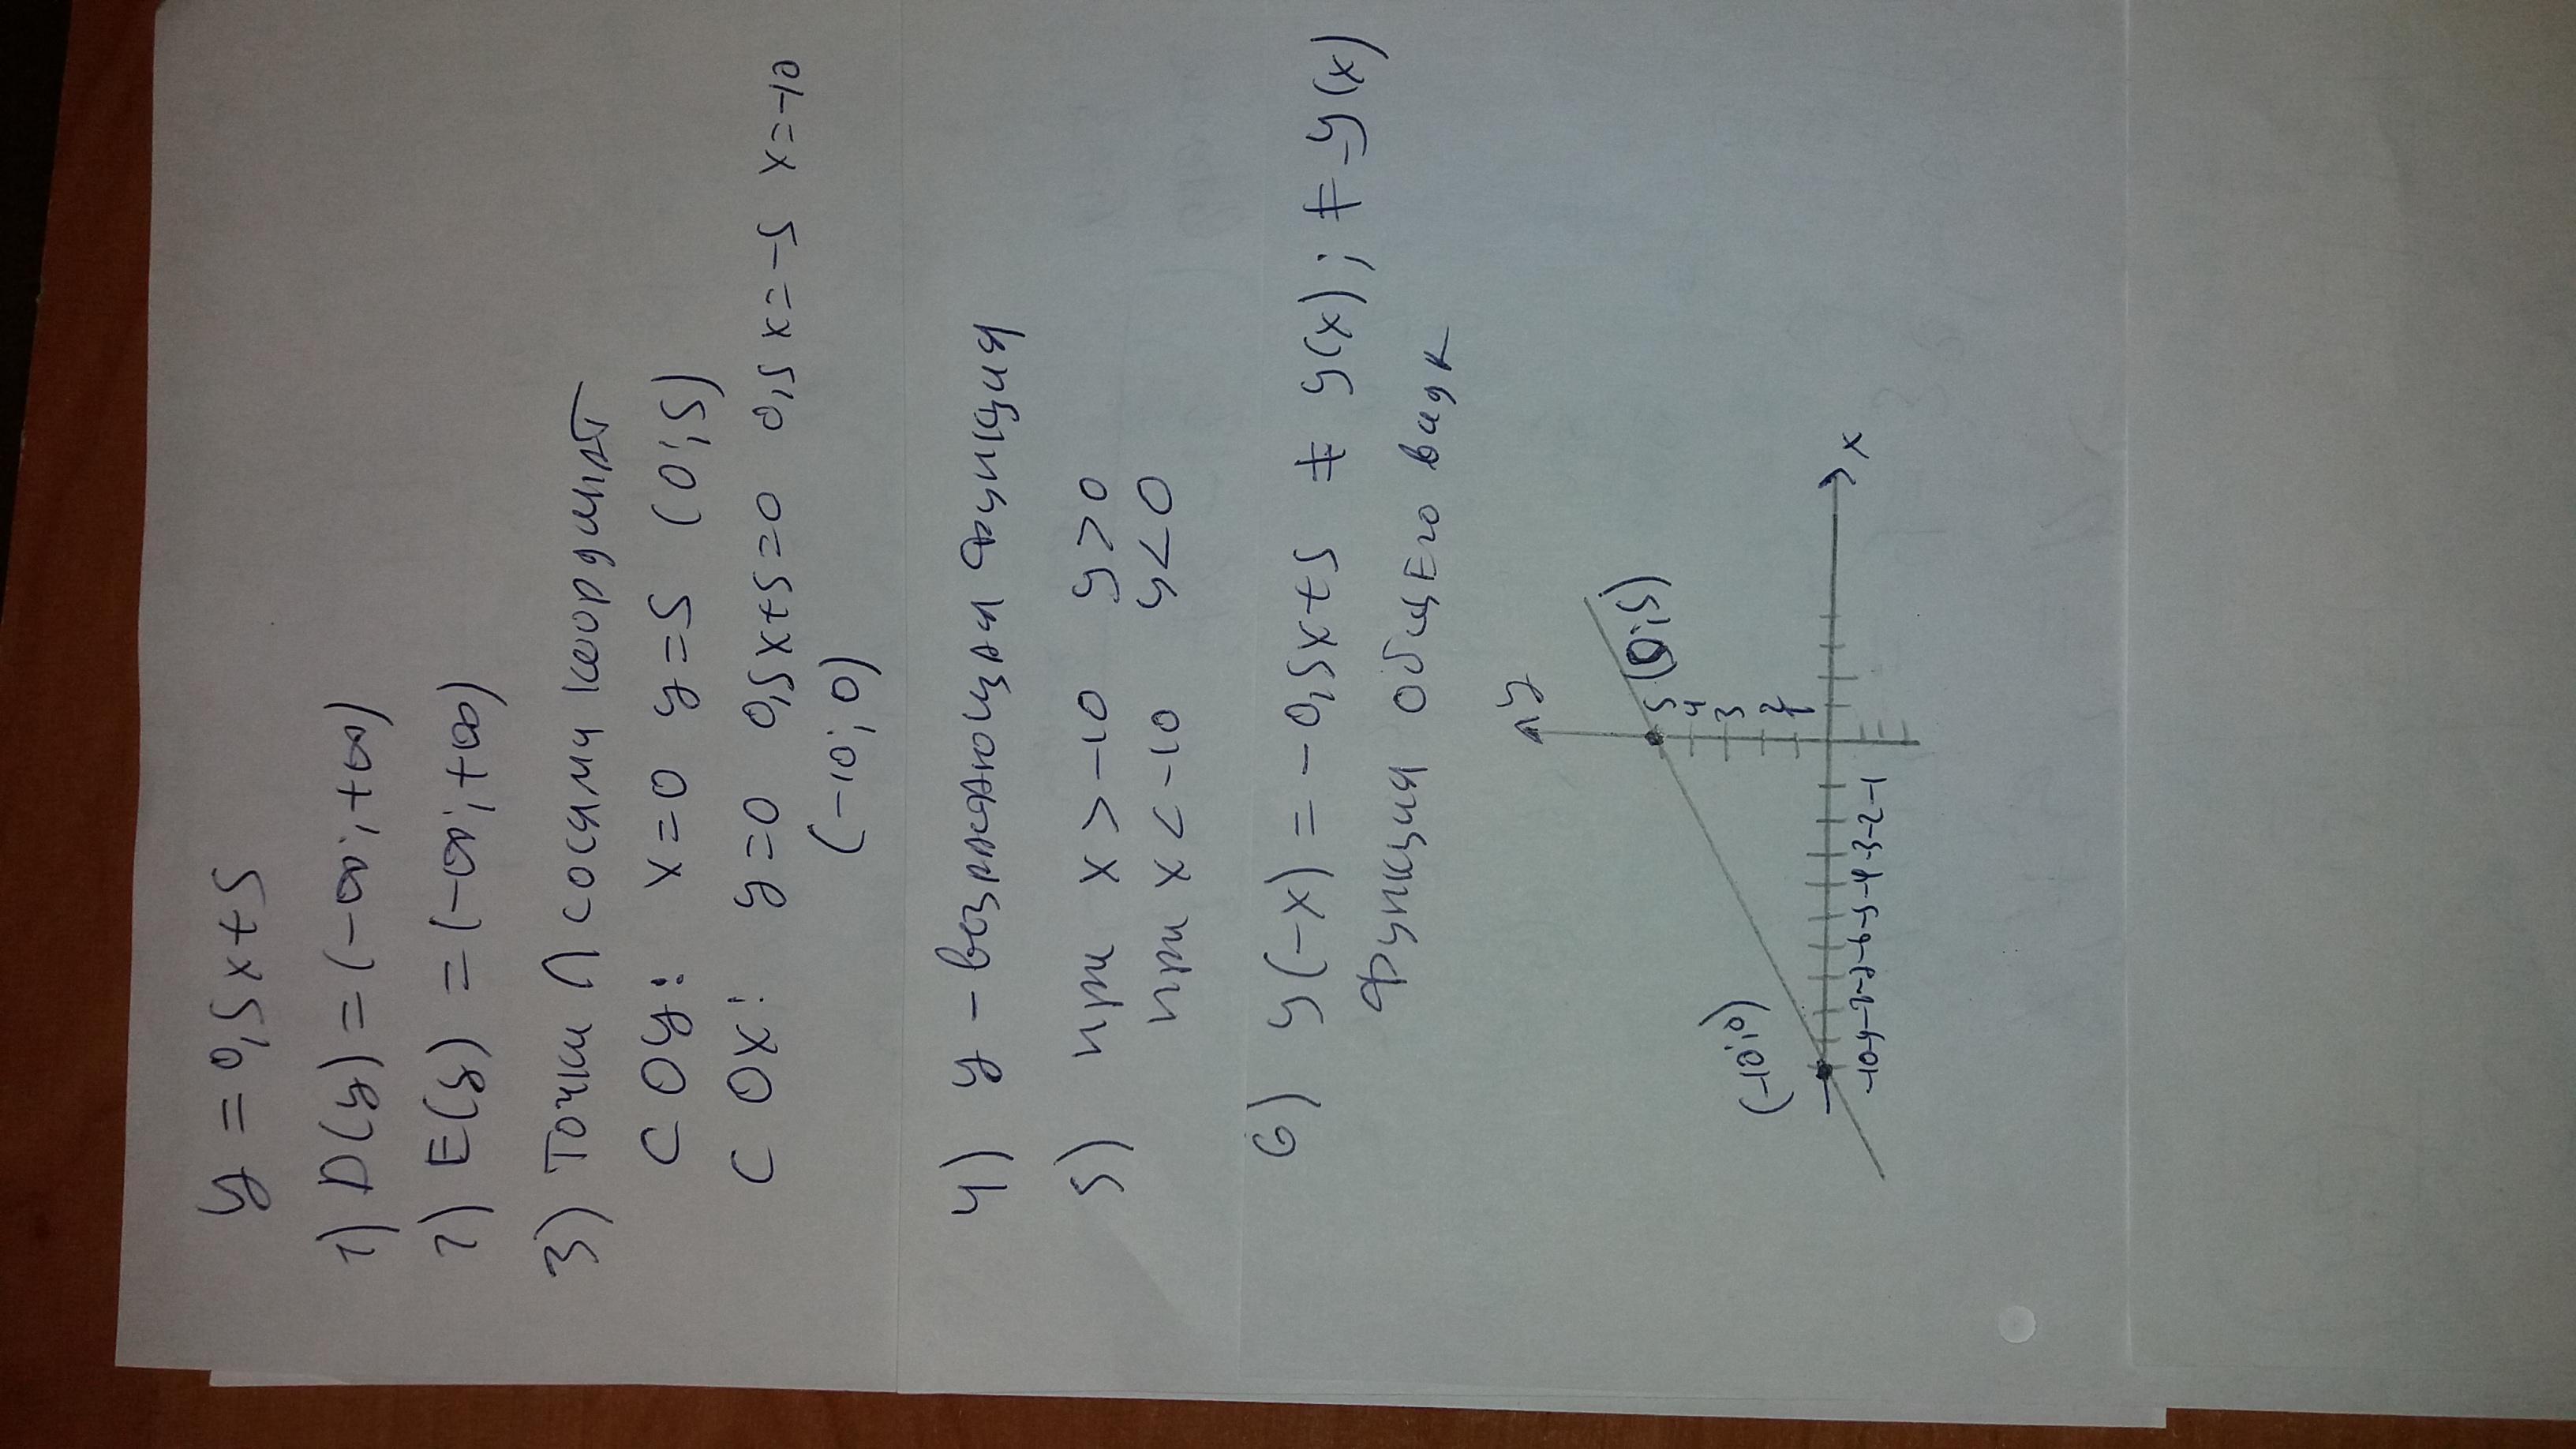 y = 0,5x+5
1) D(y) = (-∞; +∞)
2) E(y) = (-∞; +∞)
3) Точки ∩ с осями координат
с Oy: x=0 y=5 (0;5)
с Ox: y=0 0,5x+5=0 0,5x=-5 x=-10
(-10; 0)
4) y - возрастающая функция
5) при x > -10 y>0
при x < -10 y<0
6) y(-x) = -0,5x+5 ≠ y(x); ≠ -y(x)
Функция общего вида
y
(-10;0)
5 (0;5)
4
3
2
1
x
-10-9-8-7-6-5-4-3-2-1